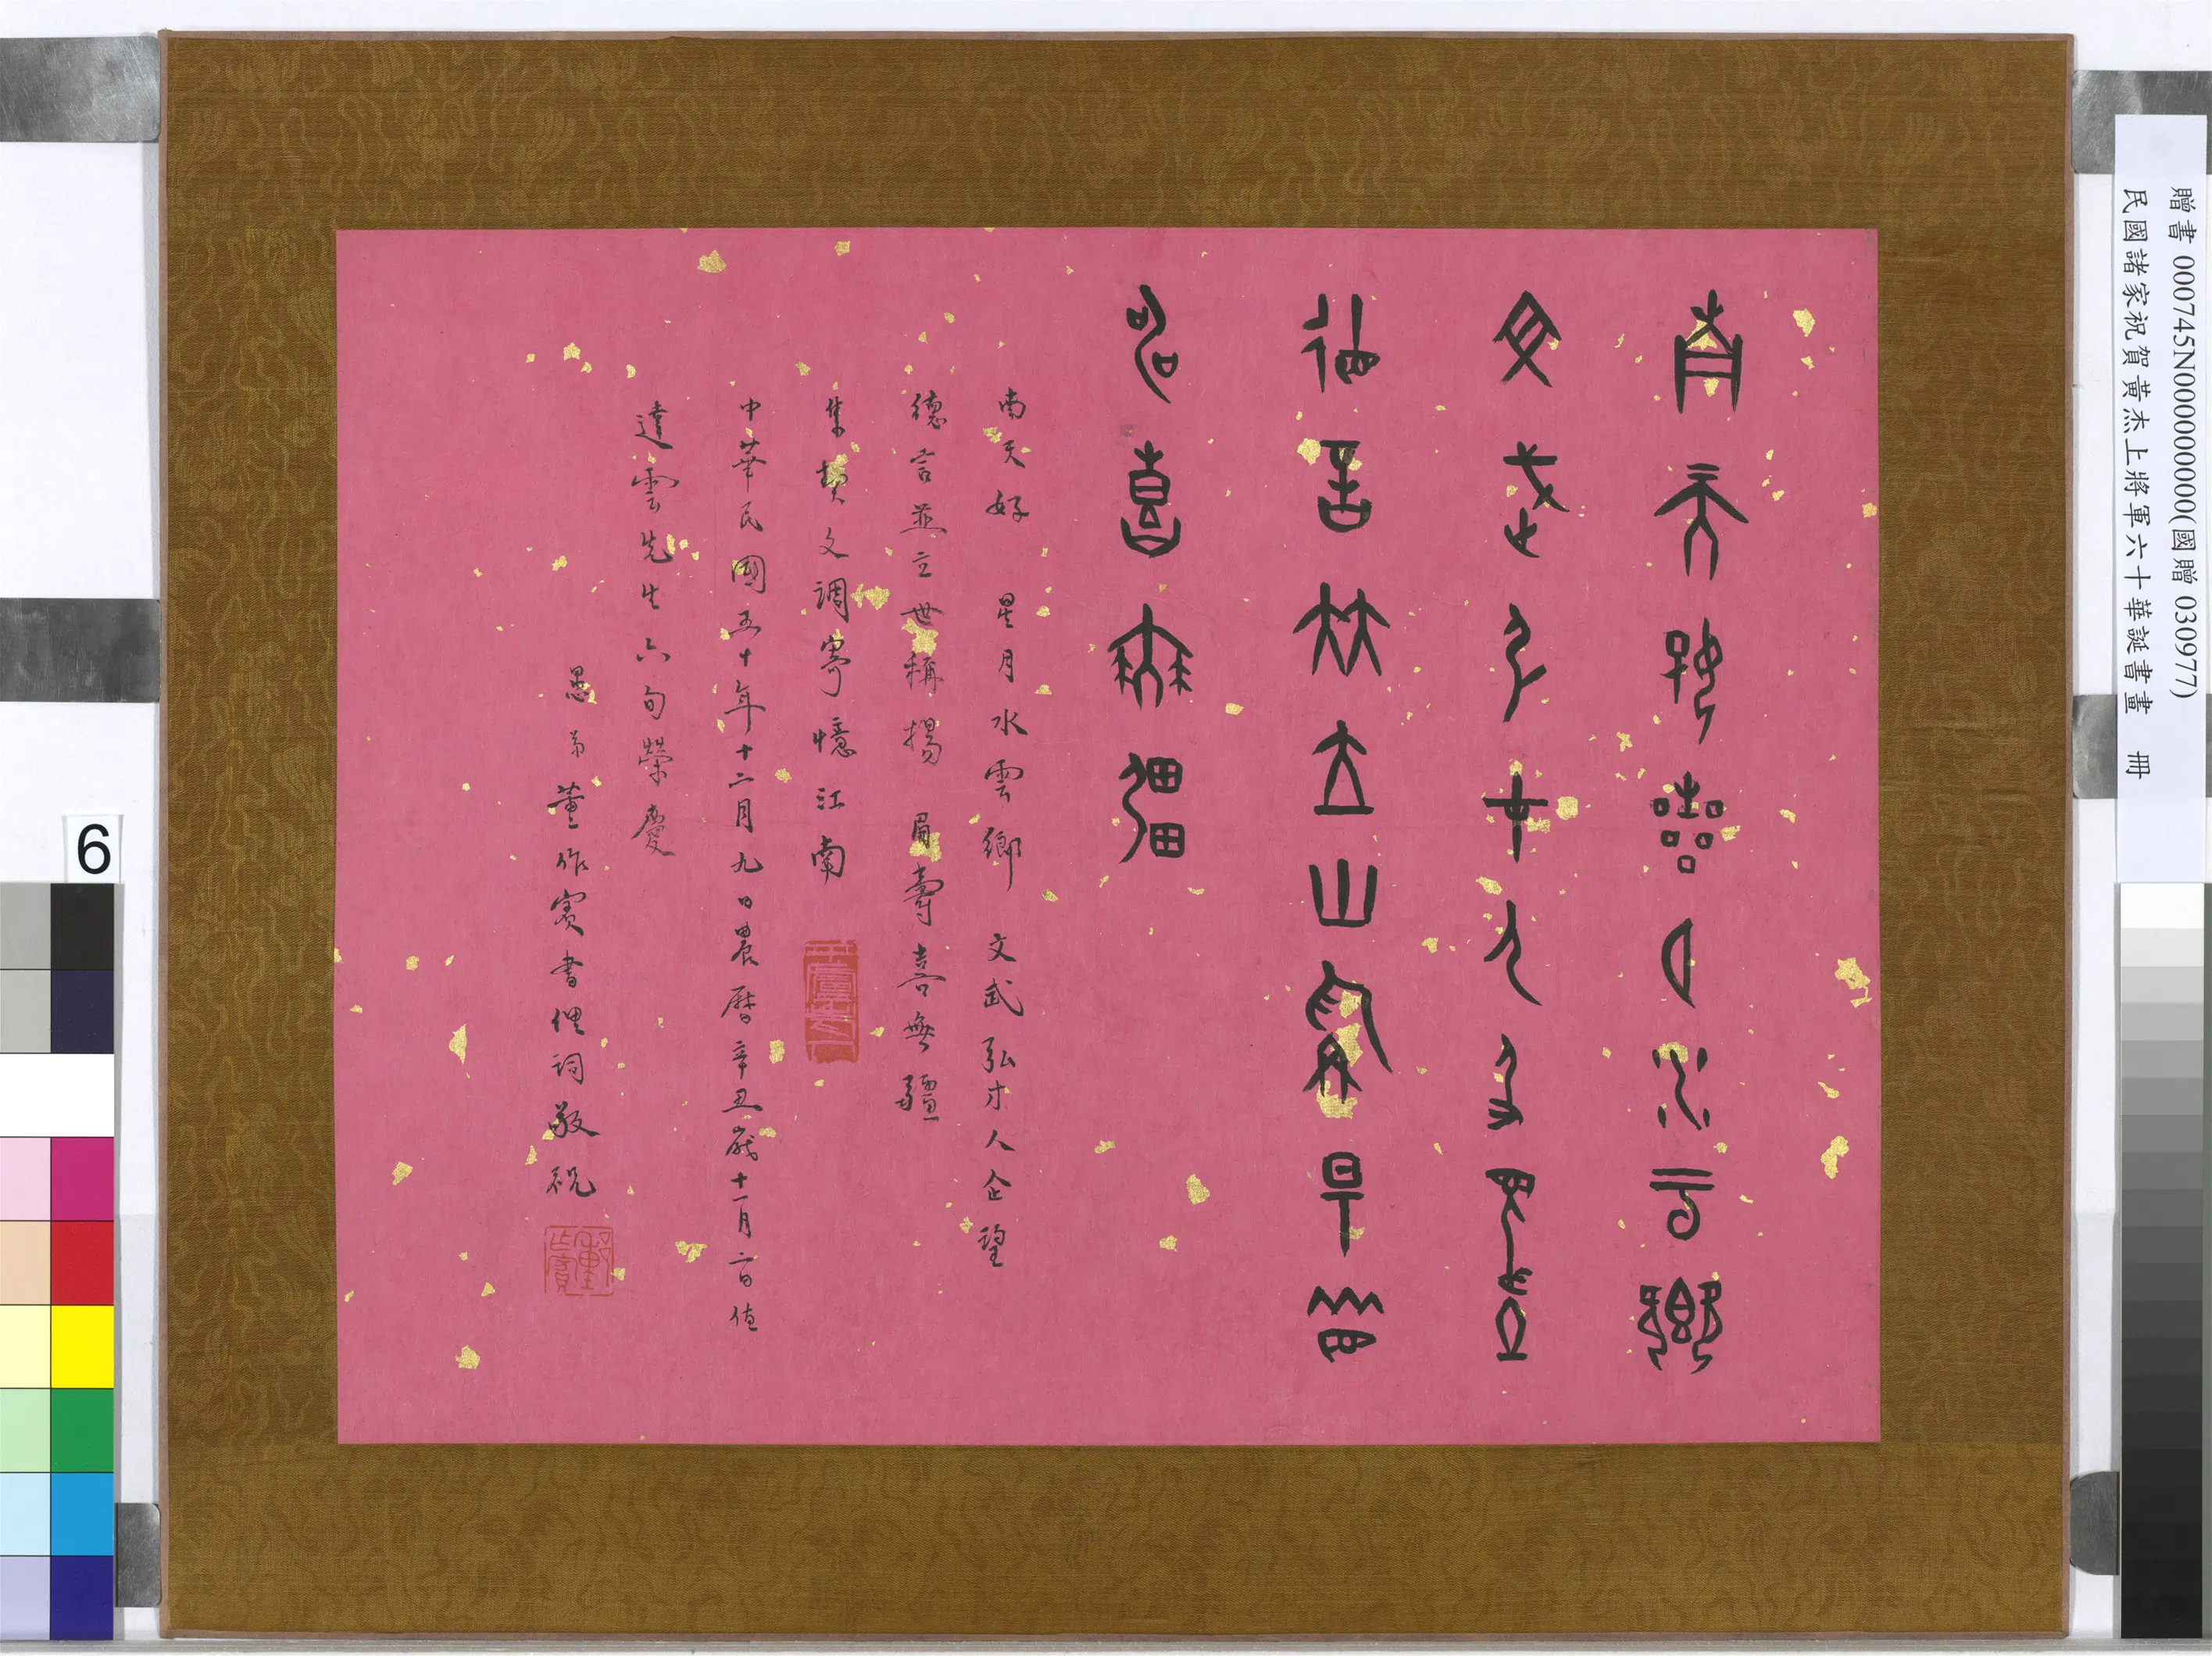 贈書 000745N000000000(國贈 030977)
民國諸家祝賀黃杰上將軍六十華誕書畫 冊
南天好星月水雲鄉
文武弘才人企望
德言並立世稱揚眉
壽喜無疆
南天好 星月水雲鄉 文武弘才人企望
德言並立世稱揚 眉壽喜無疆
集契文調寄憶江南
中華民國五十年十二月九日農曆辛丑歲十一月二日值
達雲先生六旬榮慶
愚弟董作賓書俚詞敬祝
6